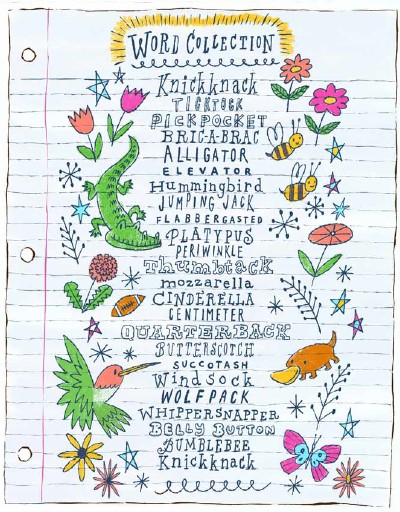 WORD COLLECTION
Knickknack
TICKTOCK
PICKPOCKET
BRIC-A-BRAC
ALLIGATOR
ELEVATOR
Hummingbird
JUMPING JACK
FLABBERGASTED
PLATYPUS
PERIWINKLE
Thumbtack
mozzarella
CINDERELLA
CENTIMETER
QUARTERBACK
BUTTERSCOTCH
SUCCOTASH
Wind Sock
WOLFPACK
WHIPPERSNAPPER
BELLY BUTTON
BUMBLEBEE
Knickknack